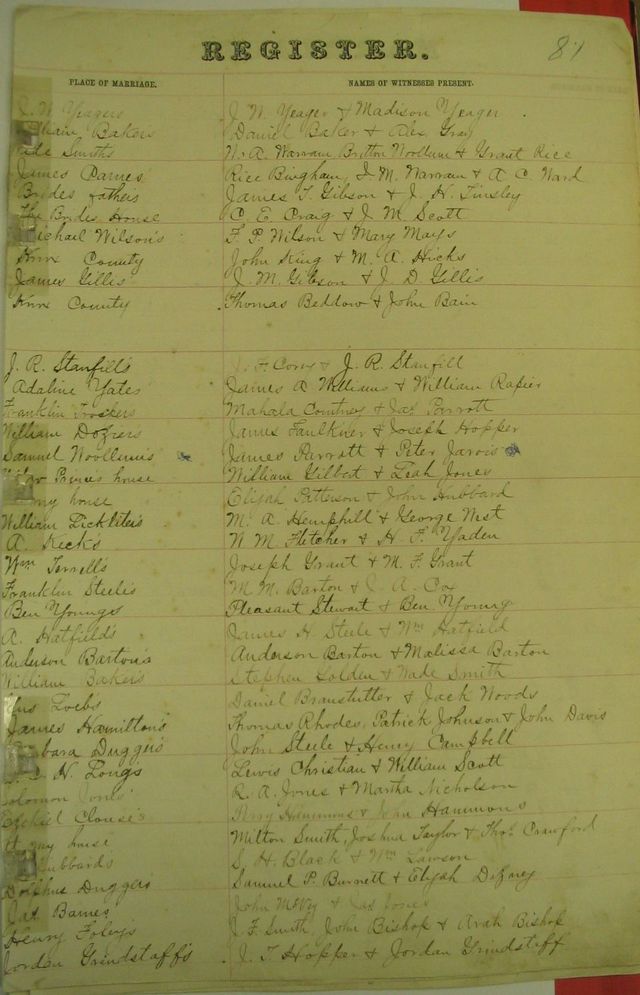 81
REGISTER.
PLACE OF MARRIAGE. NAMES OF WITNESSES PRESENT.
J. W. Yeagers J. W. Yeager & Madison Yeager
Bakers Daniel Baker & Alex Gray
Smiths W. A. Warram, Britton Woollum & Grant Rice
James Barnes Rice Bingham, J. M. Warram & A. C. Ward
Brides fathers James T. Gibson & J. H. Tinsley
The Brides House C. E. Craig & J. M. Scott
Michael Wilson's F. P. Wilson & Mary Mays
Knox County John King & M. A. Hicks
James Gillis' J. M. Gibson & J. D. Gillis
Knox County Thomas Beddow & John Bain
J. R. Stanfill's J. F. Corry & J. R. Stanfill
Adaline Yates' James A Williams & William Rapier
Franklin Trospers Mahala Courtney & Jas Parrott
William Doziers James Faulkner & Joseph Hopper
Samuel Woollums James Parrott & Peter Jarvis
house William Gilbert & Leah Jones
my house Elijah Patterson & John Hubbard
William Lickliters M. A. Hemphill & George West
A. Keck's W M Fletcher & H. F. Yaden
Wm Terrell's Joseph Grant & M. F. Grant
Franklin Steeles M. M. Barton & J. A. Cox
Ben Youngs Pleasant Stewart & Ben Young
A. Hatfield's James H. Steele & Wm Hatfield
Anderson Barton's Anderson Barton & Malissa Barton
William Bakers Stephen Golden & Wade Smith
Loebs Daniel Branstutter & Jack Woods
James Hamilton's Thomas Rhodes, Patrick Johnson & John Davis
Barbara Duggers John Steele & Henry Campbell
N. Longs Lewis Christian & William Scott
Solomon Jones' R. A. Jones & Martha Nicholson
Ezekiel Clouse's Hammons & John Hammons
At my house Milton Smith, Joshua Taylor & Thos. Crawford
Hubbards S. H. Black & Wm Lawson
Dolphus Duggers Samuel P. Burnett & Elijah Dizney
Jas Barnes John McVey & Jas Jones
Henry Foleys J. F. Smith, John Bishop & Arah Bishop
Jordan Grindstaff's J. T. Hopper & Jordan Grindstaff